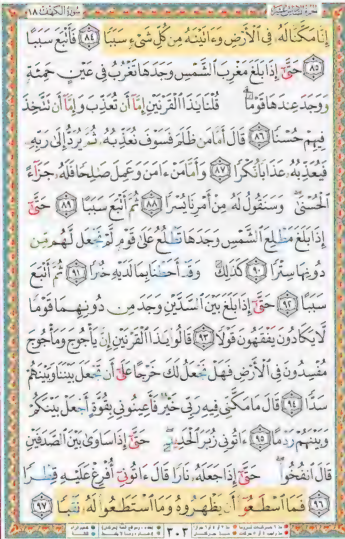 سُورَةُ الكَهْفِ ١٨
إِنَّا مَكَّنَّا لَهُۥ فِى ٱلْأَرْضِ وَءَاتَيْنَـٰهُ مِن كُلِّ شَىْءٍ سَبَبًا ٨٤ فَأَتْبَعَ سَبَبًا
٨٥ حَتَّىٰٓ إِذَا بَلَغَ مَغْرِبَ ٱلشَّمْسِ وَجَدَهَا تَغْرُبُ فِى عَيْنٍ حَمِئَةٍ
وَوَجَدَ عِندَهَا قَوْمًا ۗ قُلْنَا يَـٰذَا ٱلْقَرْنَيْنِ إِمَّآ أَن تُعَذِّبَ وَإِمَّآ أَن تَتَّخِذَ
فِيهِمْ حُسْنًا ٨٦ قَالَ أَمَّا مَن ظَلَمَ فَسَوْفَ نُعَذِّبُهُۥ ثُمَّ يُرَدُّ إِلَىٰ رَبِّهِۦ
فَيُعَذِّبُهُۥ عَذَابًا نُّكْرًا ٨٧ وَأَمَّا مَنْ ءَامَنَ وَعَمِلَ صَـٰلِحًا فَلَهُۥ جَزَآءً
ٱلْحُسْنَىٰ ۖ وَسَنَقُولُ لَهُۥ مِنْ أَمْرِنَا يُسْرًا ٨٨ ثُمَّ أَتْبَعَ سَبَبًا ٨٩ حَتَّىٰٓ
إِذَا بَلَغَ مَطْلِعَ ٱلشَّمْسِ وَجَدَهَا تَطْلُعُ عَلَىٰ قَوْمٍ لَّمْ نَجْعَل لَّهُم مِّن
دُونِهَا سِتْرًا ٩٠ كَذَٰلِكَ وَقَدْ أَحَطْنَا بِمَا لَدَيْهِ خُبْرًا ٩١ ثُمَّ أَتْبَعَ
سَبَبًا ٩٢ حَتَّىٰٓ إِذَا بَلَغَ بَيْنَ ٱلسَّدَّيْنِ وَجَدَ مِن دُونِهِمَا قَوْمًا
لَّا يَكَادُونَ يَفْقَهُونَ قَوْلًا ٩٣ قَالُوا۟ يَـٰذَا ٱلْقَرْنَيْنِ إِنَّ يَأْجُوجَ وَمَأْجُوجَ
مُفْسِدُونَ فِى ٱلْأَرْضِ فَهَلْ نَجْعَلُ لَكَ خَرْجًا عَلَىٰٓ أَن تَجْعَلَ بَيْنَنَا وَبَيْنَهُمْ
سَدًّا ٩٤ قَالَ مَا مَكَّنِّى فِيهِ رَبِّى خَيْرٌ فَأَعِينُونِى بِقُوَّةٍ أَجْعَلْ بَيْنَكُمْ
وَبَيْنَهُمْ رَدْمًا ٩٥ ءَاتُونِى زُبَرَ ٱلْحَدِيدِ ۖ حَتَّىٰٓ إِذَا سَاوَىٰ بَيْنَ ٱلصَّدَفَيْنِ
قَالَ ٱنفُخُوا۟ ۖ حَتَّىٰٓ إِذَا جَعَلَهُۥ نَارًا قَالَ ءَاتُونِىٓ أُفْرِغْ عَلَيْهِ قِطْرًا
٩٦ فَمَا ٱسْطَـٰعُوٓا۟ أَن يَظْهَرُوهُ وَمَا ٱسْتَطَـٰعُوا۟ لَهُۥ نَقْبًا ٩٧
٣٠٣